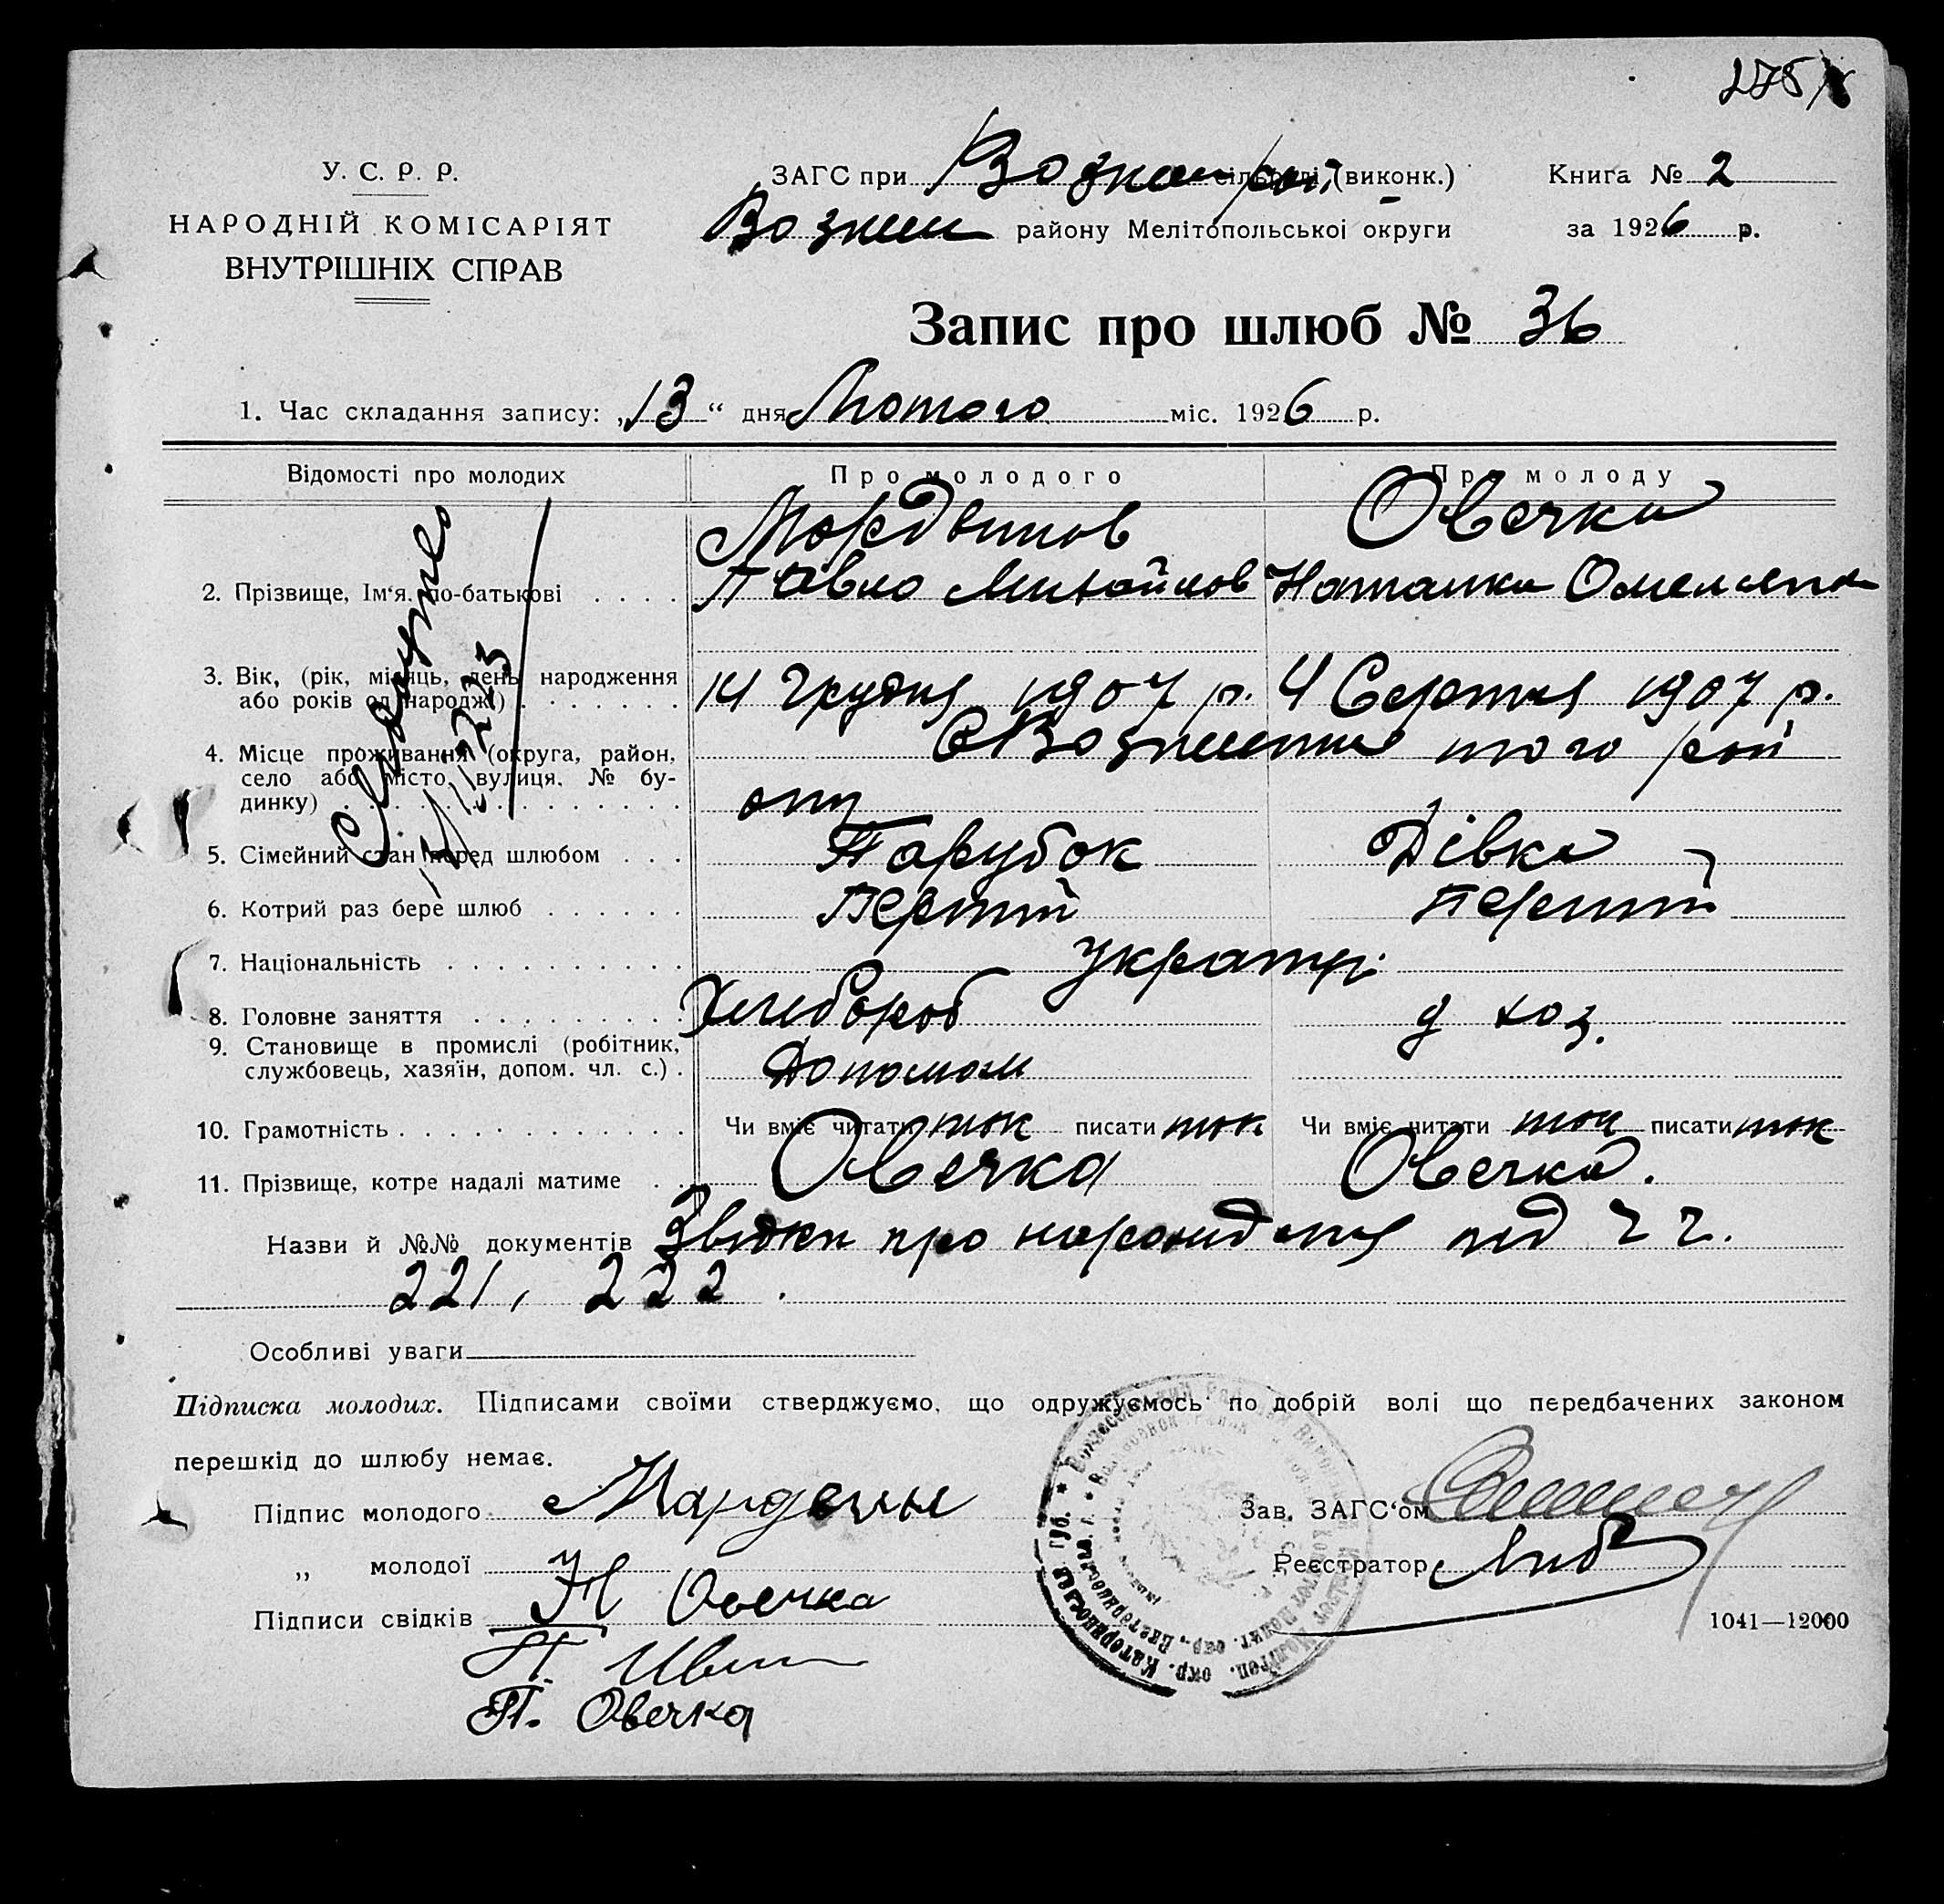 275
У. С. Р. Р.
НАРОДНІЙ КОМІСАРІЯТ
ВНУТРІШНІХ СПРАВ
ЗАГС при сільраді (виконк.) Книга № 2
Вознесен району Мелітопольської округи за 1926 р.
Запис про шлюб № 36
1. Час складання запису: „13“ дня Лютого міс. 1926 р.
Відомості про молодих Про молодого Про молоду
2. Прізвище, Ім'я, по-батькові
Мордвинов Овечка
Павло Михайлов Наталка Омелян
3. Вік, (рік, місяць, день народження або років од народж.)
14 Грудня 1907 р. 4 Серпня 1907 р.
4. Місце проживання (округа, район,
село або місто, вулиця, № бу-
динку)
с Вознесенка того рай
ону
5. Сімейний стан перед шлюбом Парубок Дівка
6. Котрий раз бере шлюб Перший Перший
7. Національність Украінці
8. Головне заняття Хлебороб д хоз.
9. Становище в промислі (робітник,
службовець, хазяїн, допом. чл. с.) Допомож
10. Грамотність Чи вміє читати так писати так Чи вміє читати так писати так
11. Прізвище, котре надалі матиме Овечка Овечка.
Назви й №№ документів про народження під ч ч.
221, 222.
Особливі уваги
Підписка молодих. Підписами своїми стверджуємо, що одружуємось по добрій волі що передбачених законом
перешкід до шлюбу немає.
Підпис молодого
„ молодої Н Овечка
Підписи свідків
П. Овечка
Зав. ЗАГС'ом
Реєстратор
1041—12000